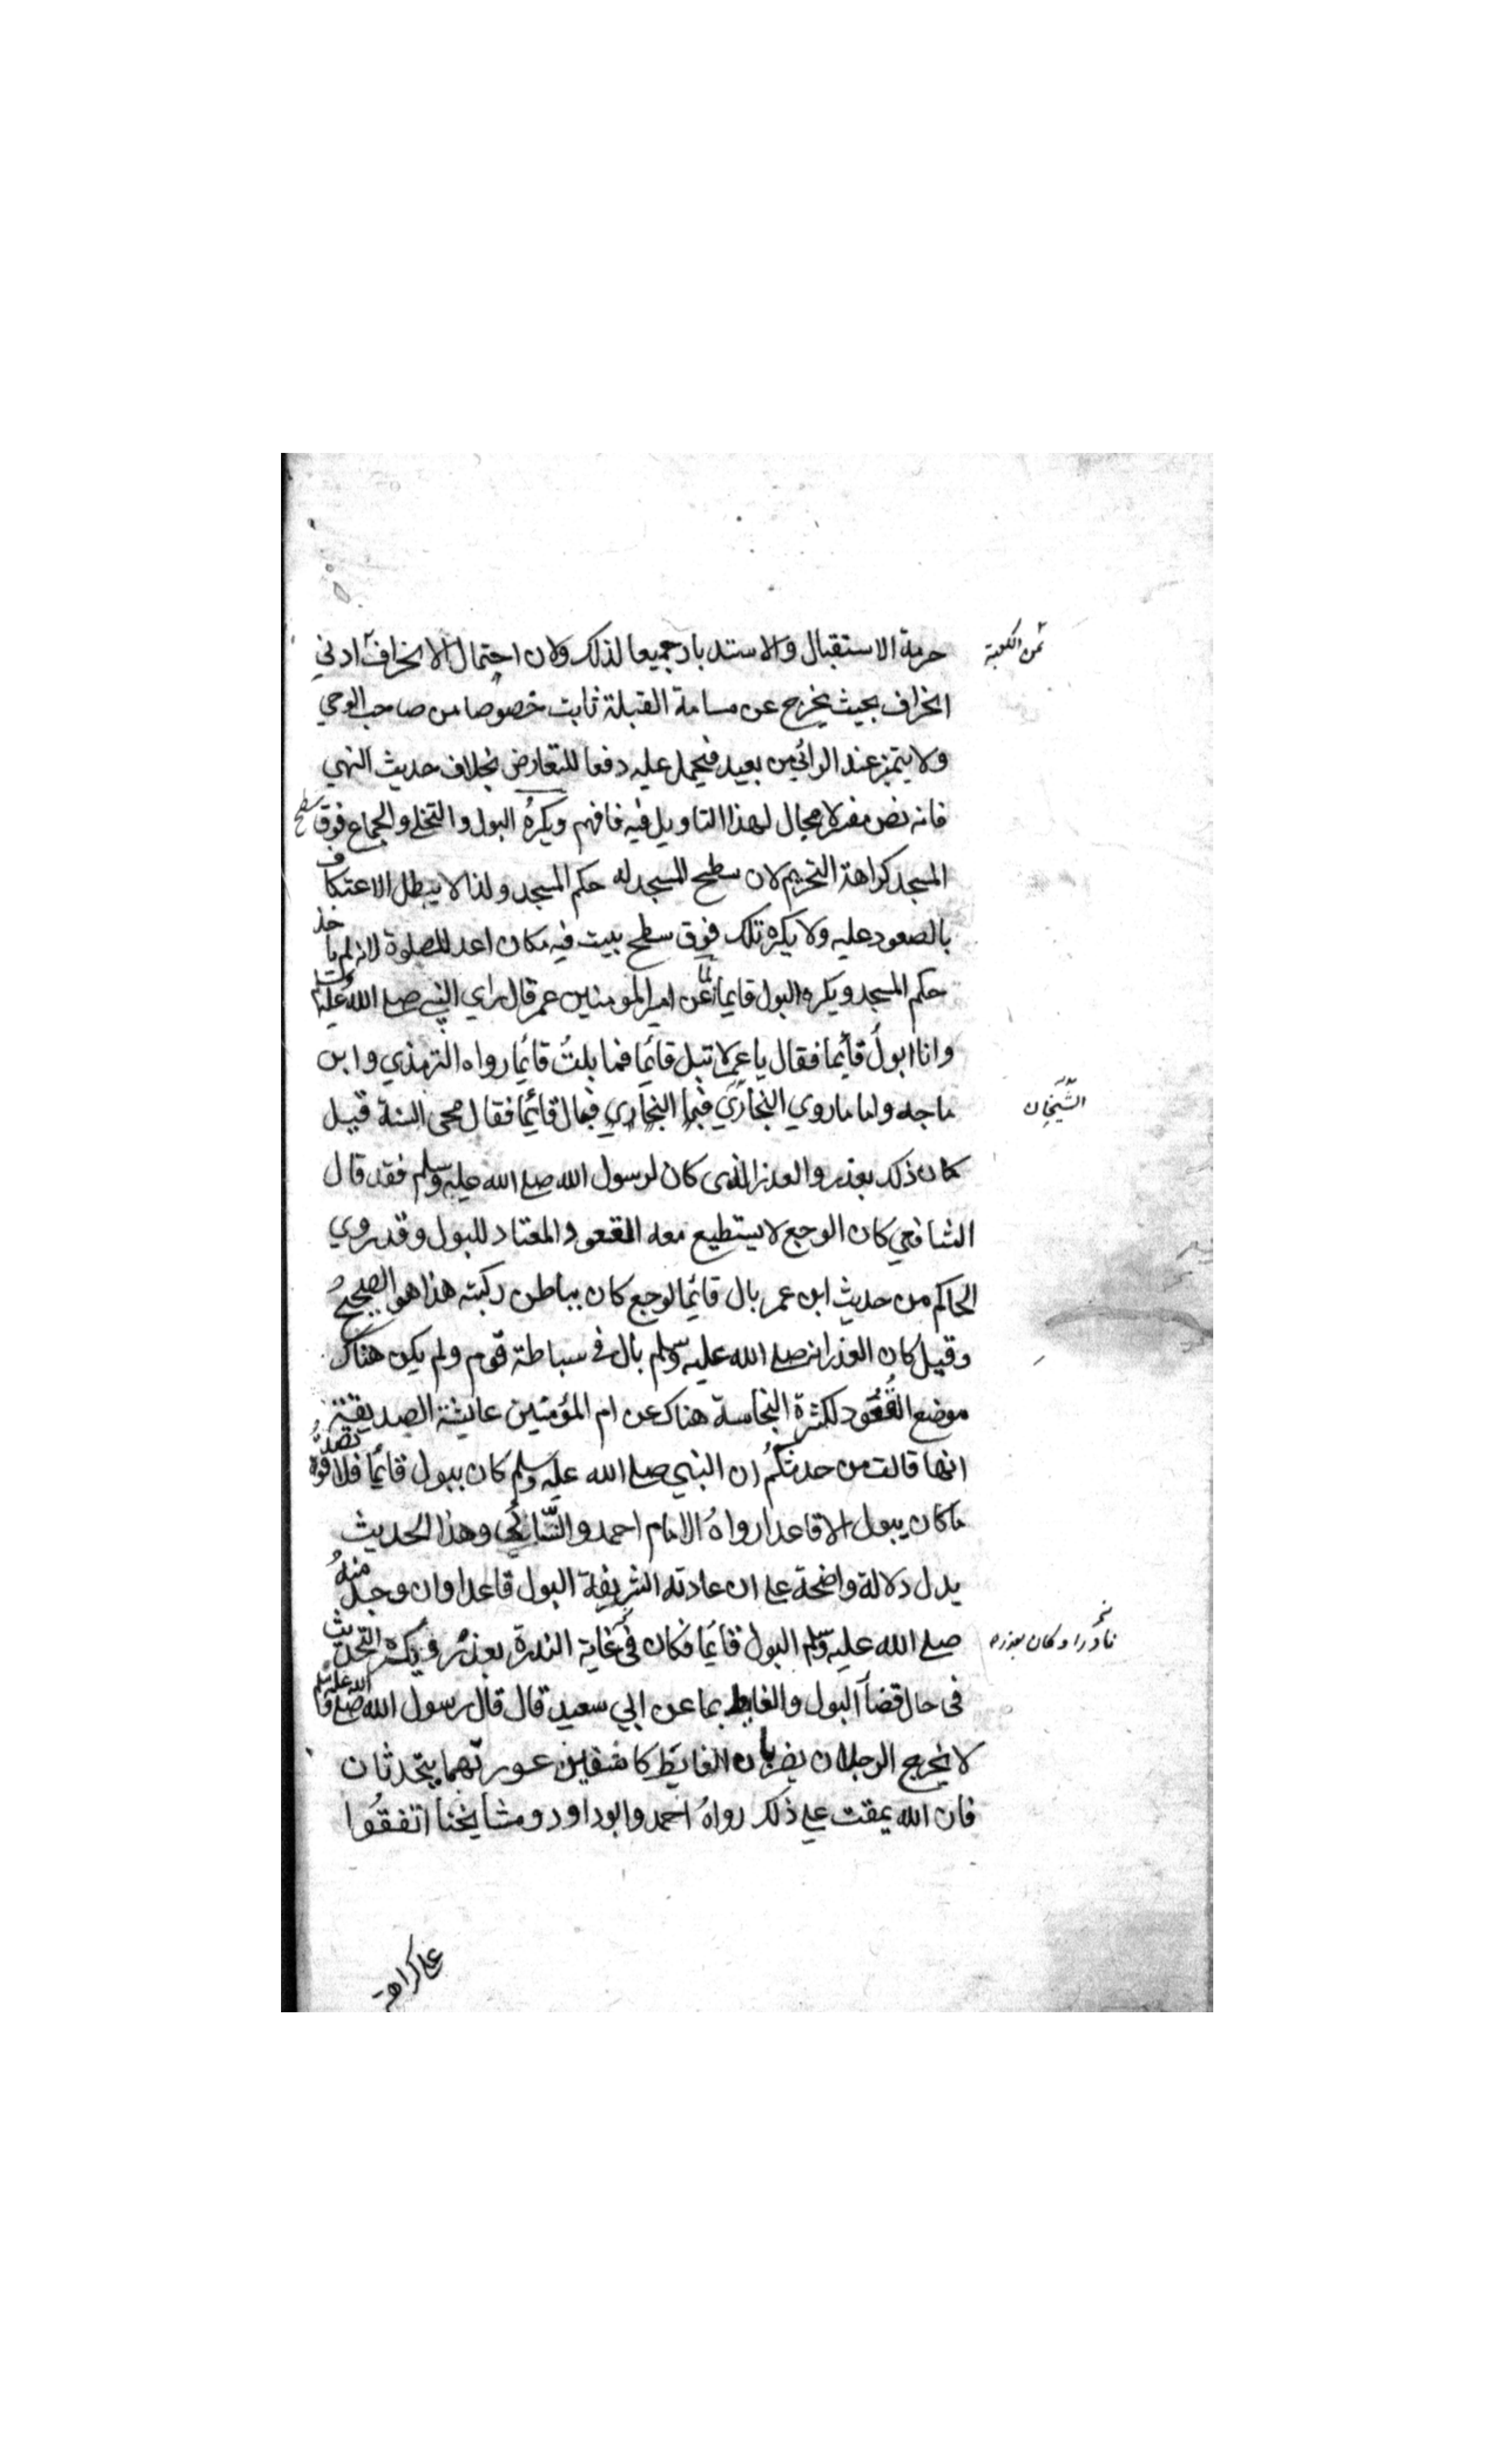 حرمة الاستقبال والاستدبار جميعا لذلك ولان احتمال الانحراف ادني
من الكعبة
انحراف بحيث يخرج عن مسامة القبلة ثابت خصوصا من صاحب الوحي
ولا يتميز عند الرائي من بعيد فيحمل عليه دفعا للتعارض بخلاف حديث النهي
فانه نص مفسر لا مجال لهذا التاويل فيه فافهم ويكرهُ البول والتخلي والجماع فوق سطح
المسجد كراهة التحريم لان سطح المسجد له حكم المسجد ولذا لا يبطل الاعتكاف
بالصعود عليه ولا يكره تلك فوق سطح بيت فيه مكان اعد للصلوة لانه لم ياخذ
حكم المسجد ويكره البول قايما لما عن امير المومنين عمر قال راي النبي صلى الله عليه وسلم
وانا ابولُ قائما فقال يا عمر لا تبل قائما فما بلتُ قائما رواه الترمذي وابن
ماجه واما ما روي البخاري فبما البخاري فبال قائما فقال محي السنة قيل
الشيخان
كان ذلك بعذر والعذر الذي كان لرسول الله صلى الله عليه وسلم فقد قال
الشافعي كان الوجع لا يستطيع معه القعود المعتاد للبول وقد روي
الحاكم من حديث ابن عمر بال قائما لوجع كان بباطن ركبته هذا هو الصحيحُ
وقيل كان العذر انه صلى الله عليه وسلم بال في سباطة قوم ولم يكن هناك
موضع القُعُود لكثرة النجاسة هناك عن ام المؤمنين عائشة الصديقة
انها قالت من حدثكُم ان النبي صلى الله عليه وسلم كان يبول قائما فلا تصدقُوه
ما كان يبول الا قاعدا رواهُ الامام احمد والنَّسائي وهذا الحديث
يدل دلالة واضحة على ان عادته الشريفة البول قاعدا وان وجد منهُ
صلى الله عليه وسلم البول قائما فكان في غاية الندرة بعذر ويكره التحديث
نادرا وكان بعذره
في حال قضاء البول والغايط بما عن ابي سعيد قال قال رسول الله صلى الله عليه وسلم
لا يخرج الرجلان يضربان الغايط كاشفين عورتهما يتحدثان
فان الله يمقت على ذلك رواهُ احمد وابو داود ومشايخنا اتفقُوا
على كراهة